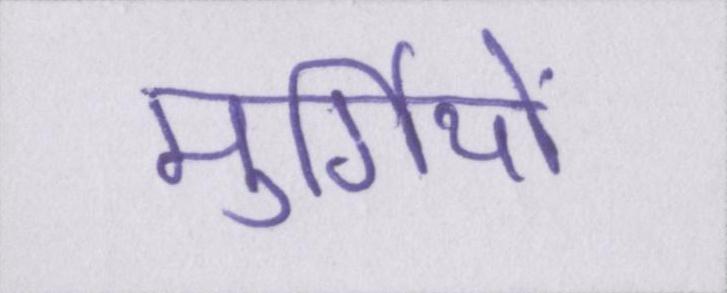 मुर्गियों